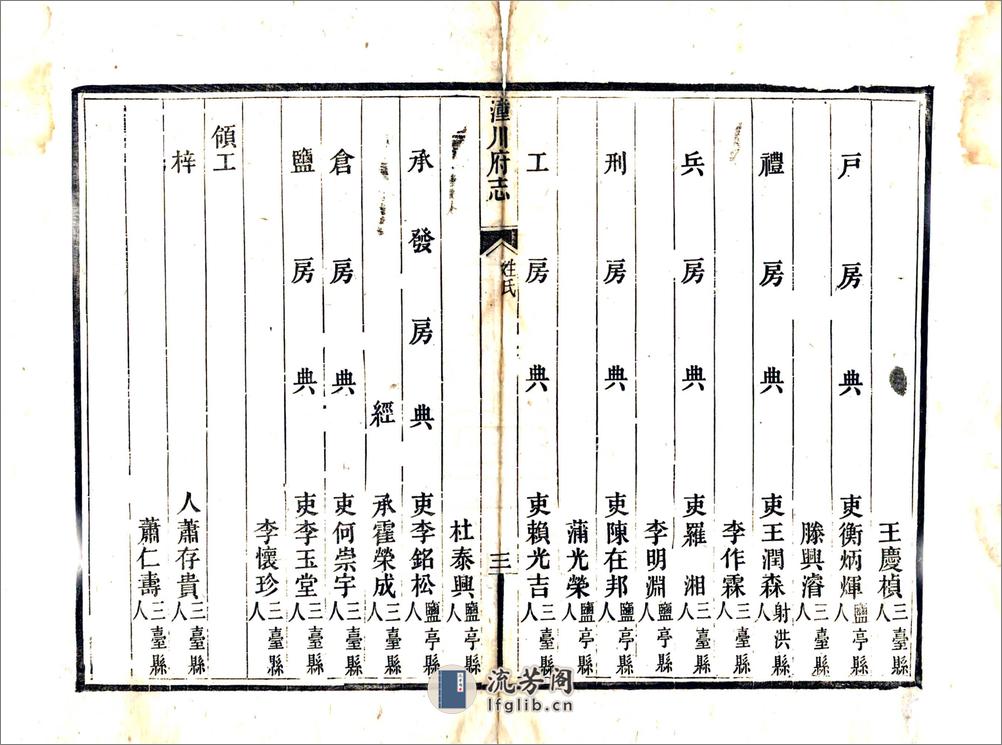 王慶楨三臺縣人
戶房典吏衡炳煇鹽亭縣人
滕興濬三臺縣人
禮房典吏王潤森射洪縣人
李作霖三臺縣人
兵房典吏羅湘三臺縣人
李明淵鹽亭縣人
刑房典吏陳在邦鹽亭縣人
蒲光榮鹽亭縣人
工房典吏賴光吉三臺縣人
潼川府志
姓氏
三
杜泰興鹽亭縣人
承發房典吏李銘松鹽亭縣人
經承霍榮成三臺縣人
倉房典吏何崇宇三臺縣人
鹽房典吏李玉堂三臺縣人
李懷珍三臺縣人
領工
梓人蕭存貴三臺縣人
蕭仁壽三臺縣人
流芳阁
lfglib.cn